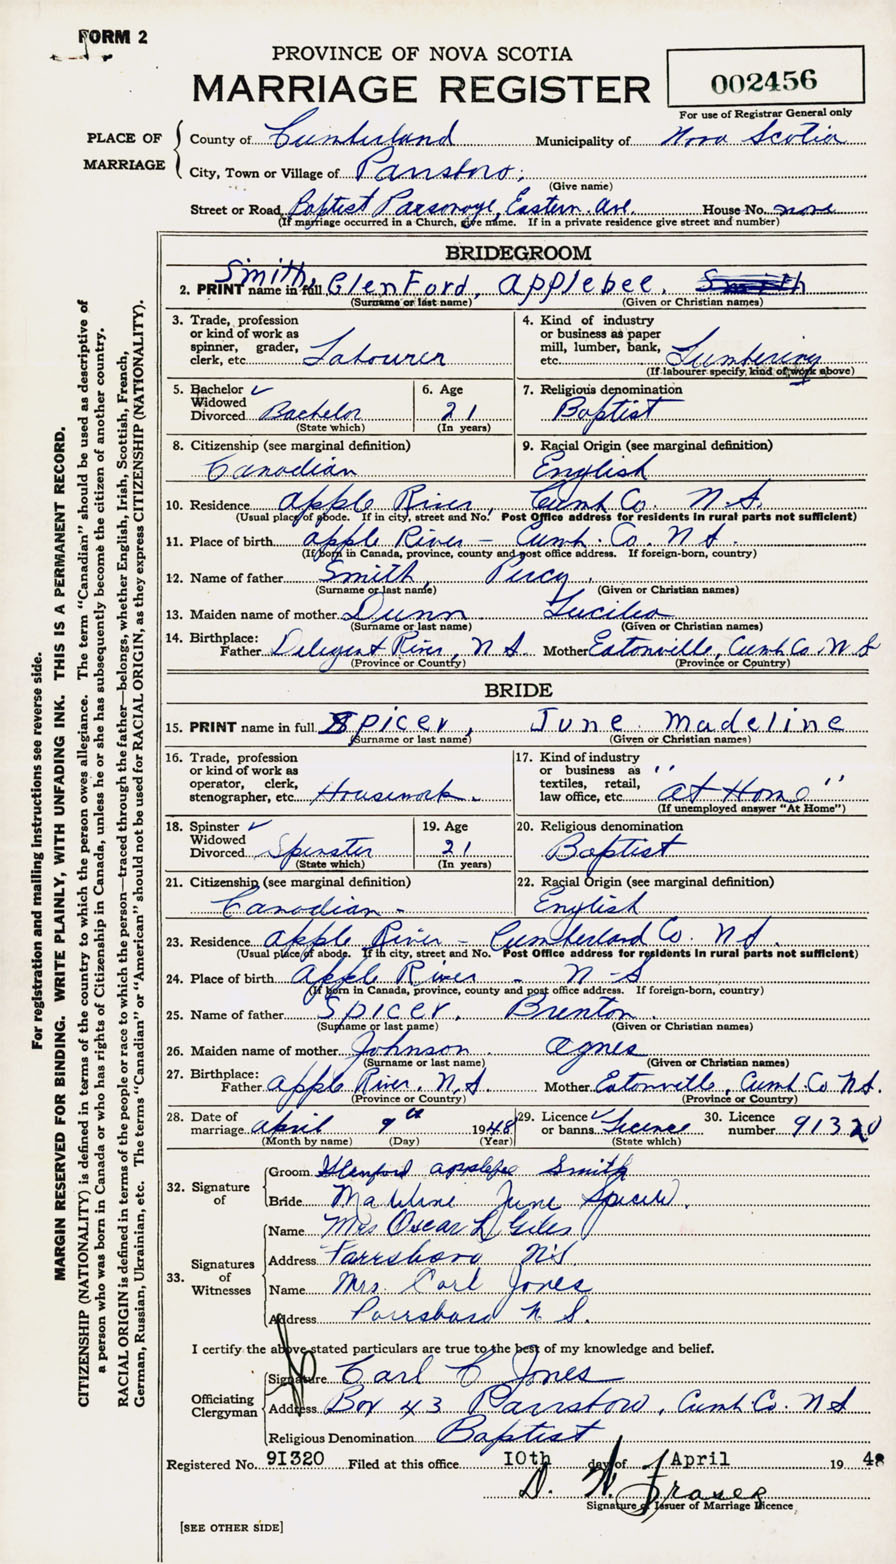 FORM 2
PROVINCE OF NOVA SCOTIA
MARRIAGE REGISTER
002456
For use of Registrar General only
PLACE OF MARRIAGE
County of Cumberland Municipality of Nova Scotia
City, Town or Village of Parrsboro.
(Give name)
Street or Road Baptist Parsonage, Eastern Ave. House No. none
(If marriage occurred in a Church, give name. If in a private residence give street and number)
BRIDEGROOM
2. PRINT name in full Smith, GlenFord, Applebee. Smith
(Surname or last name) (Given or Christian names)
3. Trade, profession or kind of work as spinner, grader, clerk, etc. Labourer
4. Kind of industry or business as paper mill, lumber, bank, etc. Lumbering
(If labourer specify kind of work above)
5. Bachelor ✓ Widowed Divorced Bachelor
(State which)
6. Age 21
(In years)
7. Religious denomination
Baptist
8. Citizenship (see marginal definition)
Canadian
9. Racial Origin (see marginal definition)
English
10. Residence Apple River, Cumb Co. N.S.
(Usual place of abode. If in city, street and No. Post Office address for residents in rural parts not sufficient)
11. Place of birth Apple River - Cumb. Co. N.S.
(If born in Canada, province, county and post office address. If foreign-born, country)
12. Name of father Smith, Percy.
(Surname or last name) (Given or Christian names)
13. Maiden name of mother Dunn Lucilea
(Surname or last name) (Given or Christian names)
14. Birthplace:
Father Deligent River, N.S. Mother Eatonville, Cumb Co. N S
(Province or Country) (Province or Country)
BRIDE
15. PRINT name in full Spicer, June Madeline
(Surname or last name) (Given or Christian names)
16. Trade, profession or kind of work as operator, clerk, stenographer, etc. Housework.
17. Kind of industry or business as textiles, retail, law office, etc. "at Home"
(If unemployed answer "At Home")
18. Spinster ✓ Widowed Divorced Spinster
(State which)
19. Age 21
(In years)
20. Religious denomination
Baptist
21. Citizenship (see marginal definition)
Canadian -
22. Racial Origin (see marginal definition)
English
23. Residence Apple River - Cumberland Co. N.S.
(Usual place of abode. If in city, street and No. Post Office address for residents in rural parts not sufficient)
24. Place of birth Apple River - N-S
(If born in Canada, province, county and post office address. If foreign-born, country)
25. Name of father Spicer, Brenton.
(Surname or last name) (Given or Christian names)
26. Maiden name of mother Johnson. Agnes
(Surname or last name) (Given or Christian names)
27. Birthplace:
Father Apple River. N.S. Mother Eatonville, Cumb. Co N.S.
(Province or Country) (Province or Country)
28. Date of marriage April 9th 1948
(Month by name) (Day) (Year)
29. Licence ✓ or banns Licence
(State which)
30. Licence number 91320
32. Signature of
Groom Glenford Applebee Smith
Bride Madeline June Spicer.
33. Signatures of Witnesses
Name Mrs Oscar L Giles
Address Parrsboro N.S.
Name Mrs. Carl Jones
Address Parrsboro N S.
I certify the above stated particulars are true to the best of my knowledge and belief.
Officiating Clergyman
Signature Carl C Jones
Address Box 43 Parrsboro, Cumb. Co. N S
Religious Denomination Baptist
Registered No. 91320 Filed at this office 10th day of April 19 48
D. W. Fraser
Signature of Issuer of Marriage Licence
[SEE OTHER SIDE]
For registration and mailing instructions see reverse side.
MARGIN RESERVED FOR BINDING. WRITE PLAINLY, WITH UNFADING INK. THIS IS A PERMANENT RECORD.
CITIZENSHIP (NATIONALITY) is defined in terms of the country to which the person owes allegiance. The term "Canadian" should be used as descriptive of
a person who was born in Canada or who has rights of Citizenship in Canada, unless he or she has subsequently become the citizen of another country.
RACIAL ORIGIN is defined in terms of the people or race to which the person—traced through the father—belongs, whether English, Irish, Scottish, French,
German, Russian, Ukrainian, etc. The terms "Canadian" or "American" should not be used for RACIAL ORIGIN, as they express CITIZENSHIP (NATIONALITY).